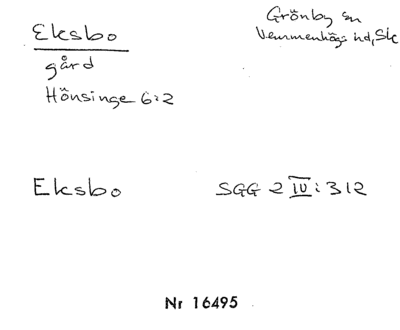 Eksbo
Grönby sn
Vemmenhögs hd, Sk
gård
Hönsinge 6:2
Eksbo
SGG 2 IV: 312
Nr 16495